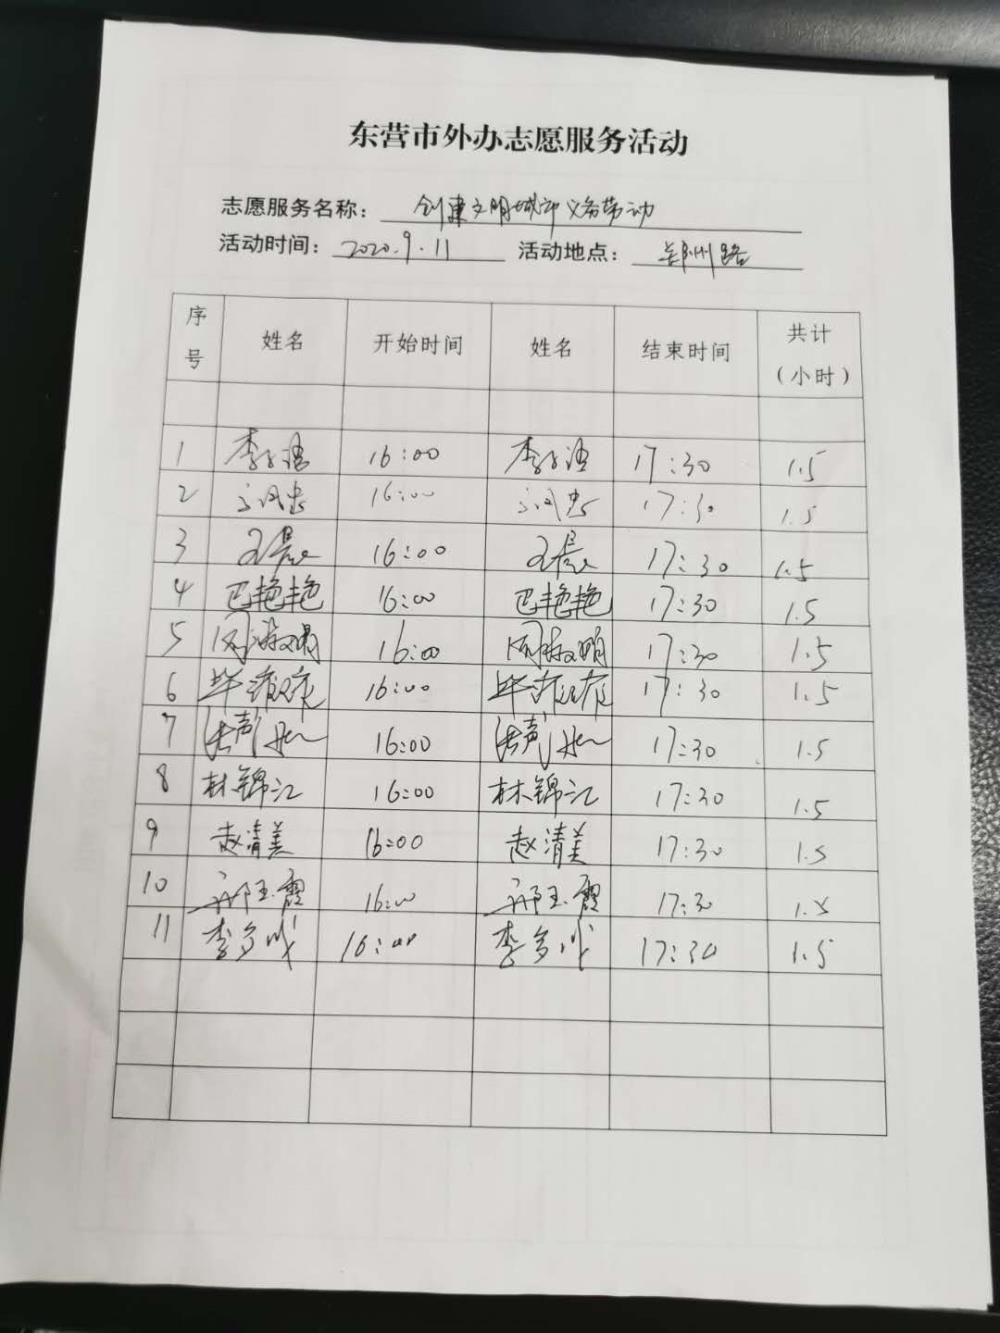 东营市外办志愿服务活动
志愿服务名称：创建文明城市义务劳动
活动时间：2020.9.11 活动地点：郑州路
序号 姓名 开始时间 姓名 结束时间 共计（小时）
1 李 16:00 李 17:30 1.5
2 16:00 17:30 1.5
3 王晨 16:00 王晨 17:30 1.5
4 巴艳艳 16:00 巴艳艳 17:30 1.5
5 16:00 17:30 1.5
6 16:00 17:30 1.5
7 16:00 17:30 1.5
8 林锦江 16:00 林锦江 17:30 1.5
9 赵清美 16:00 赵清美 17:30 1.5
10 邴玉霞 16:00 邴玉霞 17:30 1.5
11 李 16:00 李 17:30 1.5